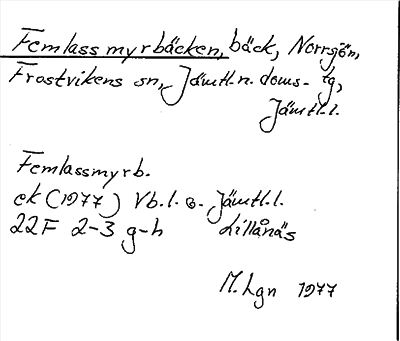 Femlassmyrbäcken, bäck, Norrsjön,
Frostvikens sn, Jämtl.n. doms. tg,
Jämtl.l.
Femlassmyrb.
ek (1977) Vb.l. o. Jämtl.l.
22F 2-3 g-h Lillånäs
M. Lgn 1977